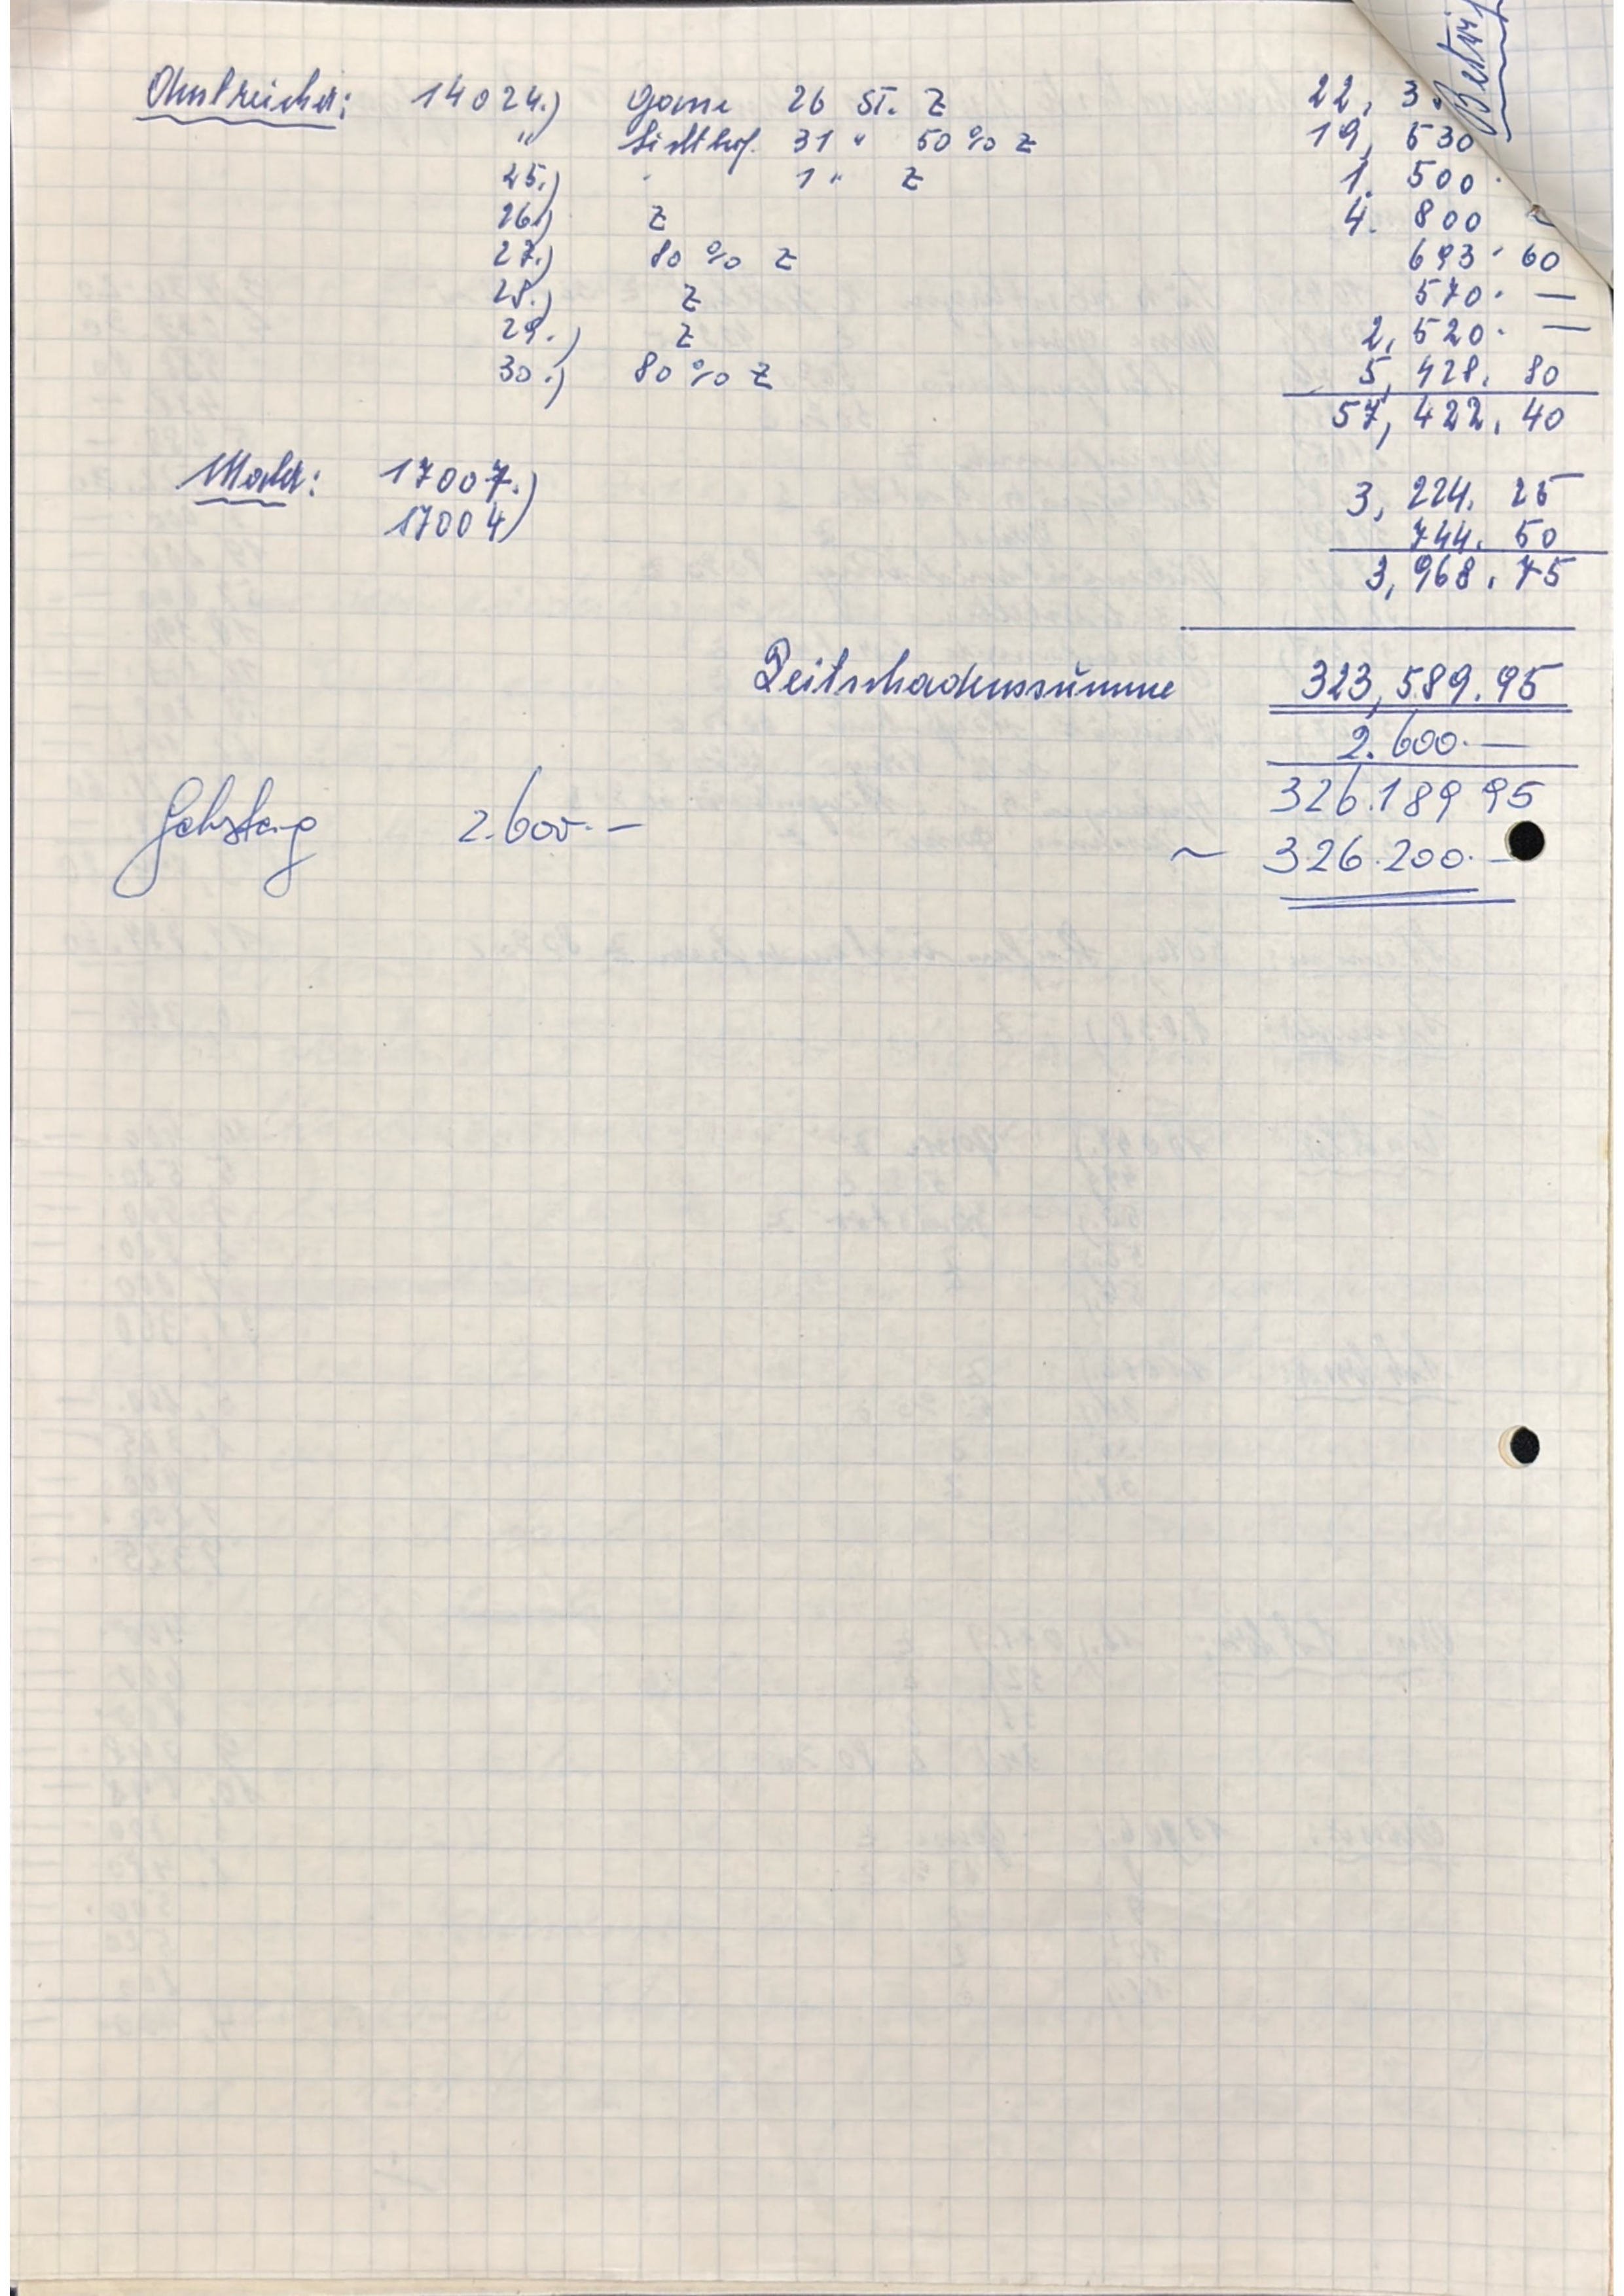 Anstreicher: 14024.) Gassens. 26 ST. Z 22, 3
" Lichthof. 31 " 50 % Z 19, 530
25.) " 1 " Z 1. 500.
26.) Z 4. 800 —
27.) 80 % Z 693. 60
28.) Z 570. —
29.) Z 2, 520. —
30.) 80 % Z 5, 428. 80
57, 422. 40
Maler: 17007.) 3, 224. 25
17004) 744. 50
3, 968. 75
Zeitschadenssumme 323, 589. 95
2. 600. —
326.189 95
2.600. —
~ 326.200. —